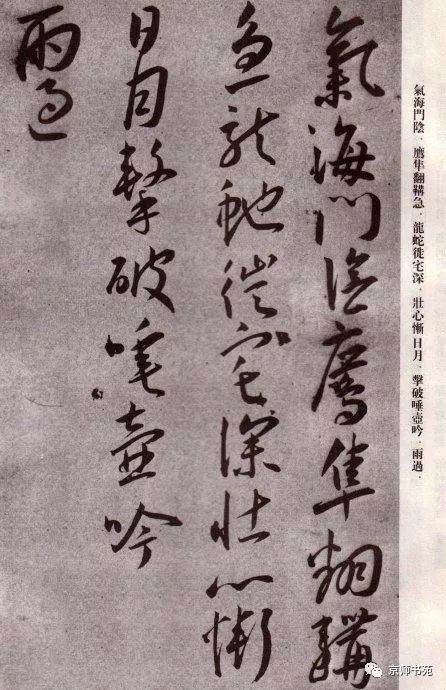 氣海門陰．鷹隼翻鞲急．龍蛇徙宅深．壯心慚日月．擊破唾壺吟．雨過．
氣海門陰鷹隼翻鞲
急龍蛇徙宅深壯心慚
日月擊破唾壺吟
雨過
京师书苑